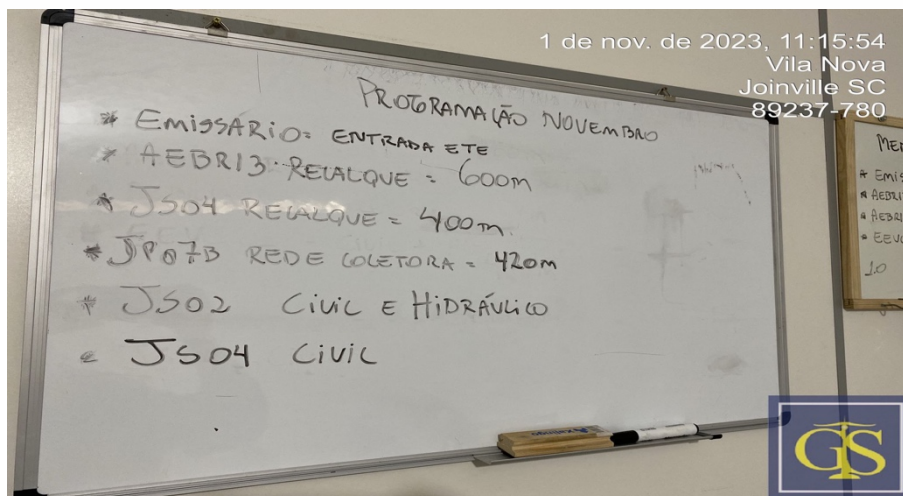 1 de nov. de 2023, 11:15:54
Vila Nova
Joinville SC
89237-780
PROGRAMAÇÃO NOVEMBRO
* EMISSÁRIO: ENTRADA ETE
* AEBR13 RECALQUE = 600m
* JS04 RECALQUE = 400m
* JP07B REDE COLETORA = 420m
* JS02 CIVIL E HIDRÁULICO
* JS04 CIVIL
* EMIS
* AEBR1
* AEBR
* EEV
GS